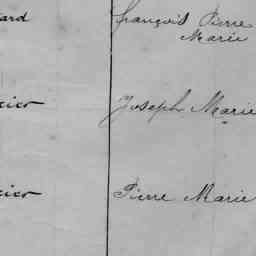 ard françois Pierre
Marie
Joseph Marie
Pierre Marie